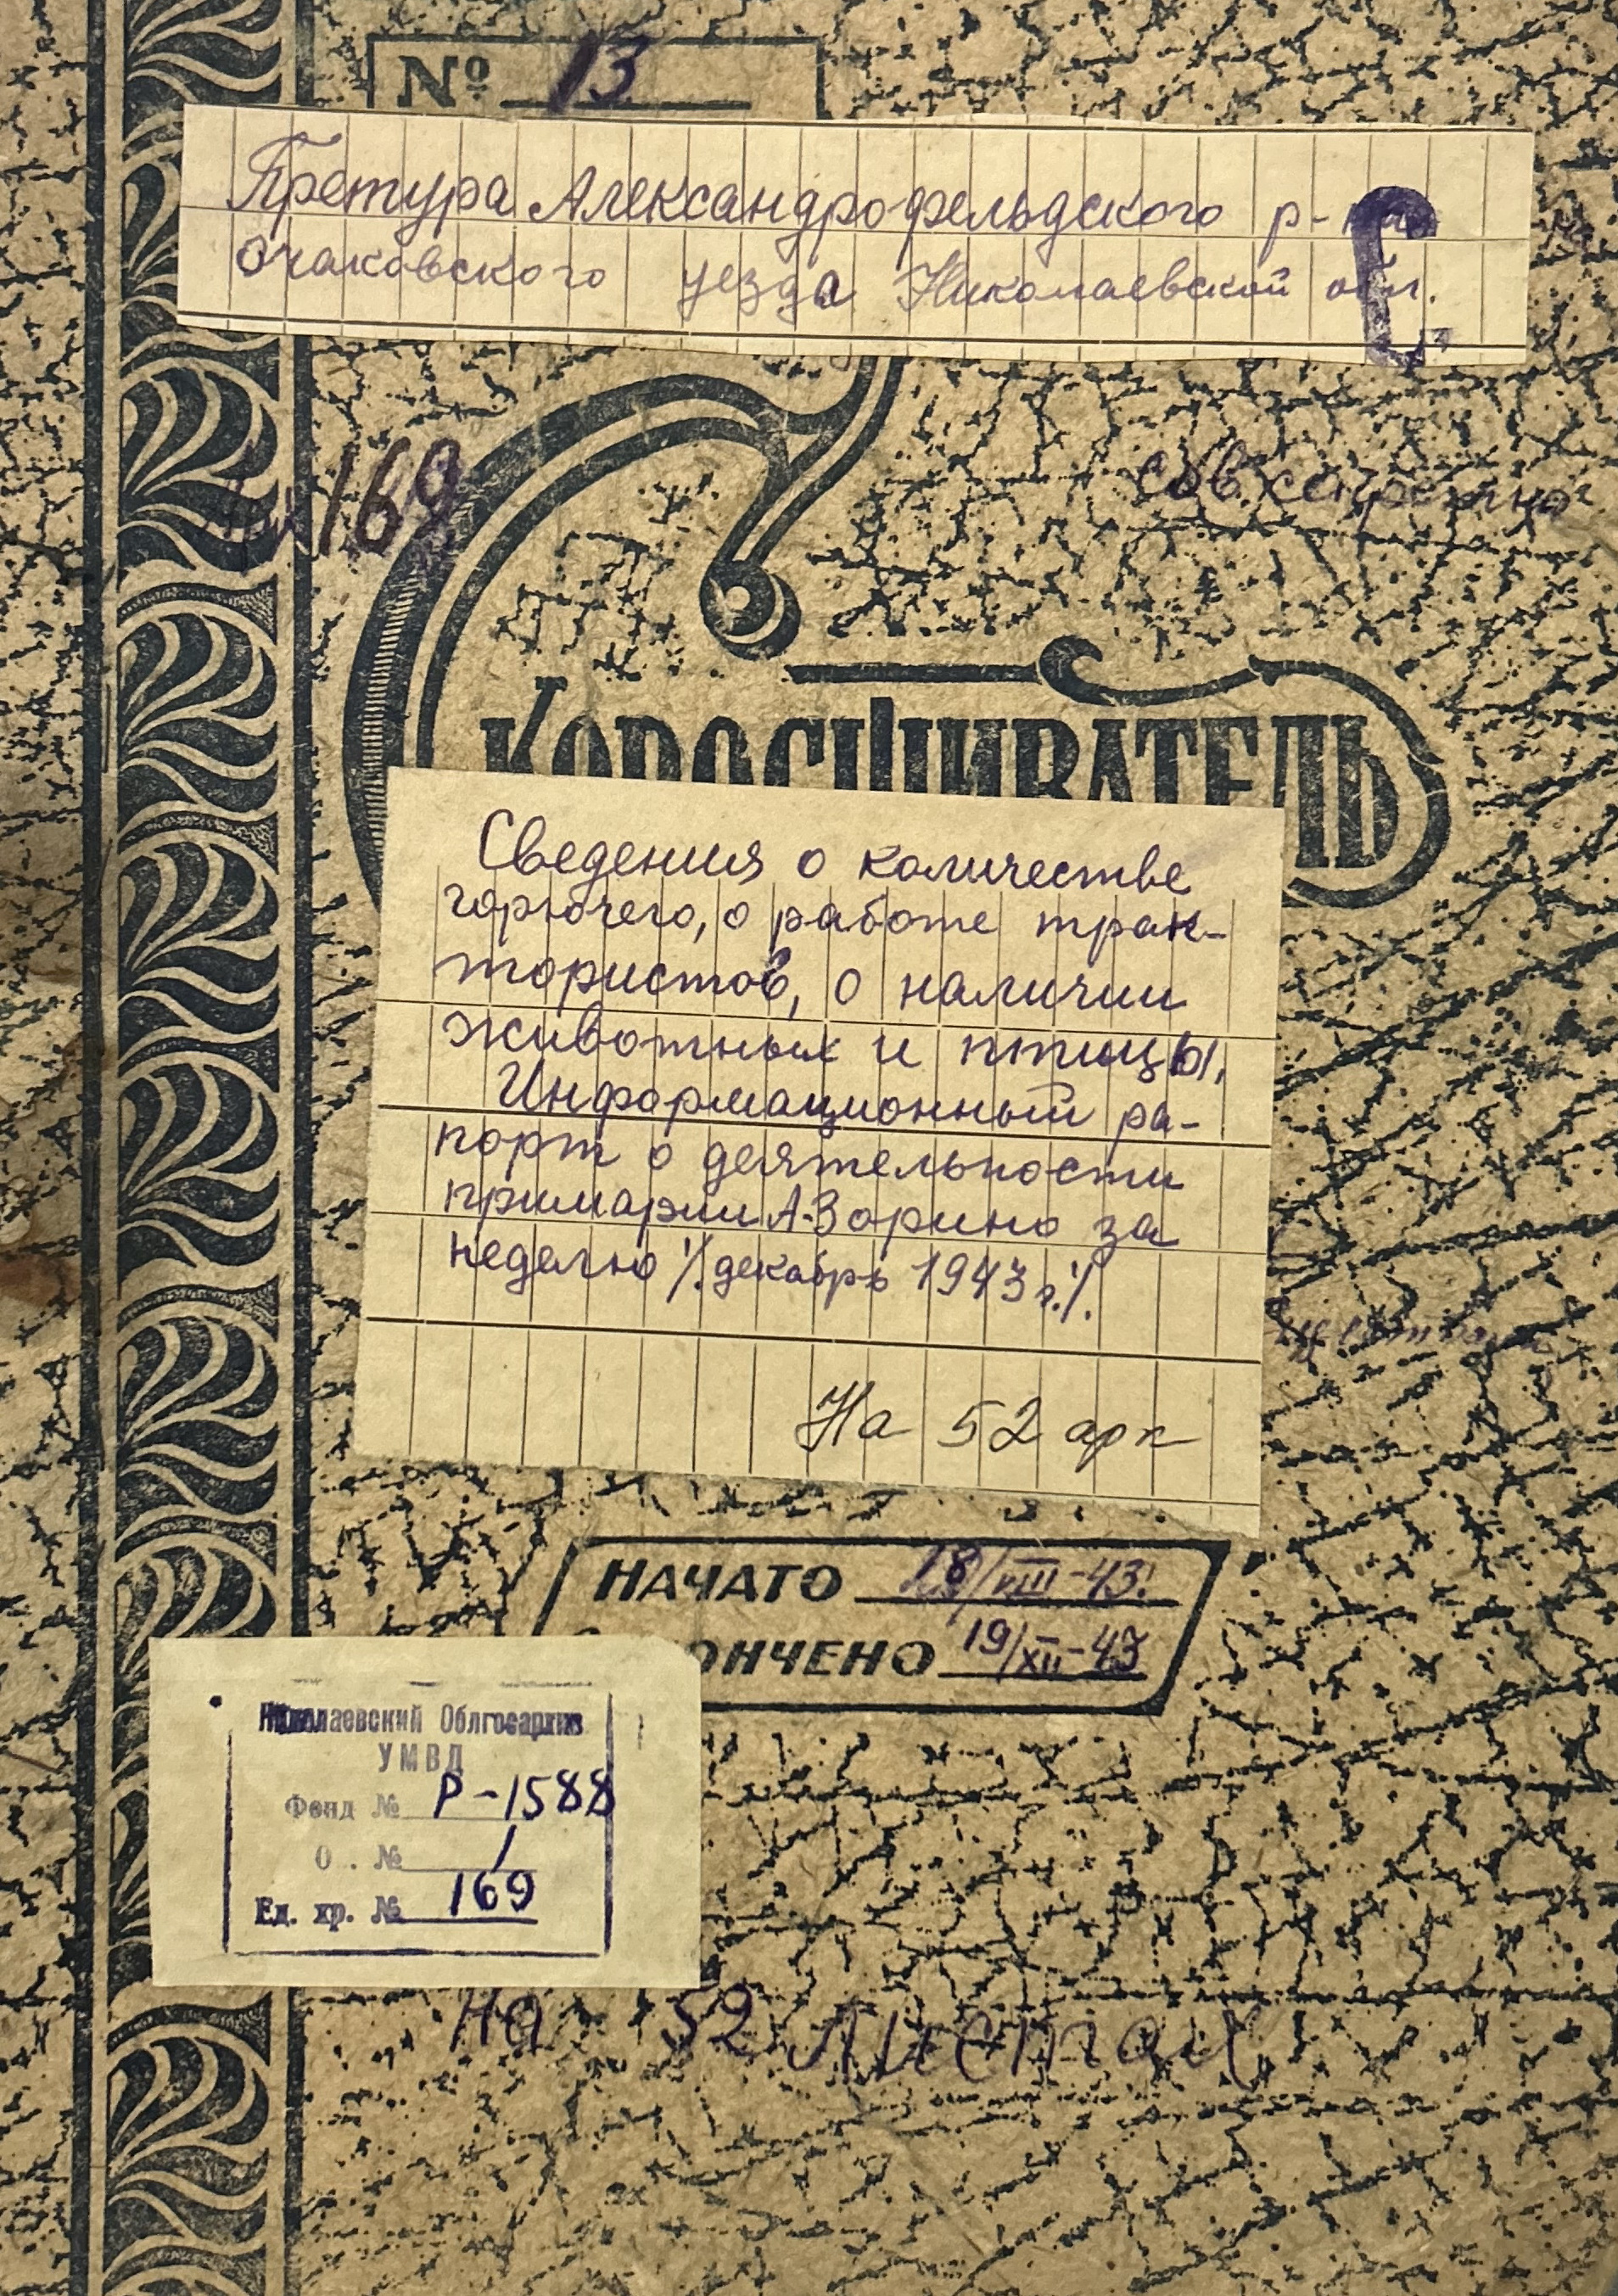 № 13
Претура Александрофельдского р-на
Очаковского уезда Николаевской обл.
169
Сов. секретно
КОРОСШИВАТЕЛЬ
Сведения о количестве
горючего, о работе трак-
тористов, о наличии
животных и птицы.
Информационный ра-
порт о деятельности
примарии А-Зорино за
неделю /декабрь 1943 г./.
На 52 арк
НАЧАТО 18/VIII-43.
ОНЧЕНО 19/XII-43
Николаевский Облгосархив
УМВД
Фонд № Р-1588
О . № 1
Ед. хр. № 169
На 52 листах